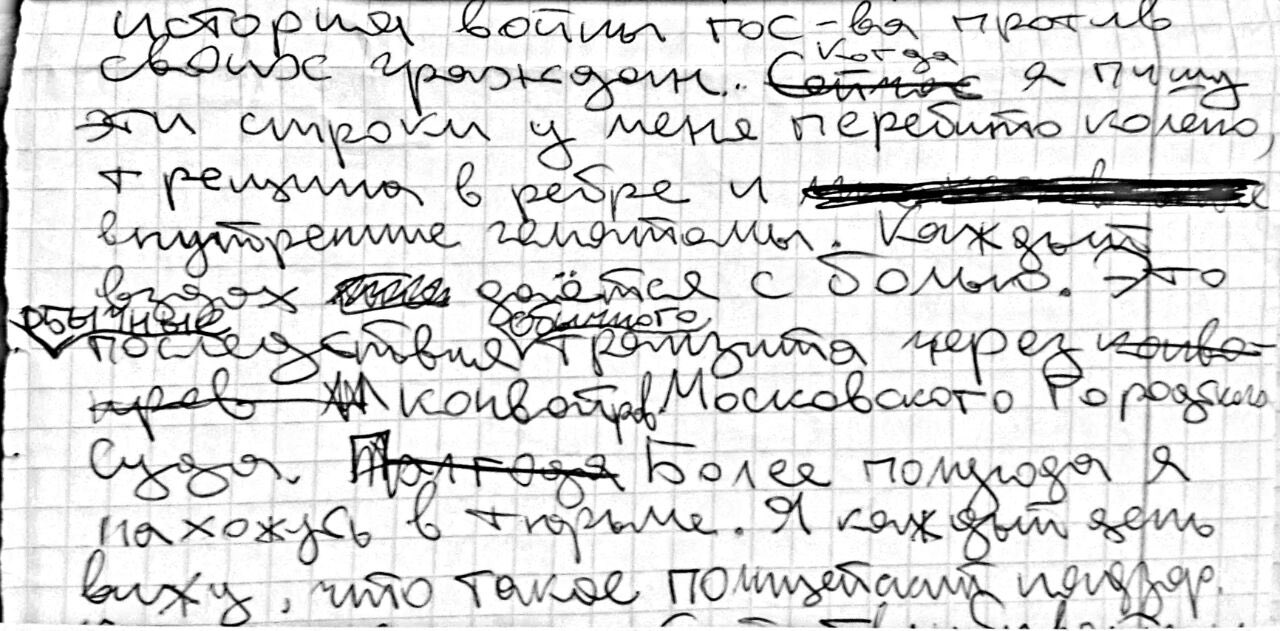 история войны гос-ва против
своих граждан.. Сейчас когда я пишу
эти строки у меня перебито колено,
трещина в ребре и
внутренние гематомы. Каждый
вздох даётся с болью. Это
обычные обычного
последствия транзита через конво-
иров конвойров Московского Городского
Суда. Полгода Более полугода я
нахожусь в тюрьме. Я каждый день
вижу, что такое полицейский надзор.